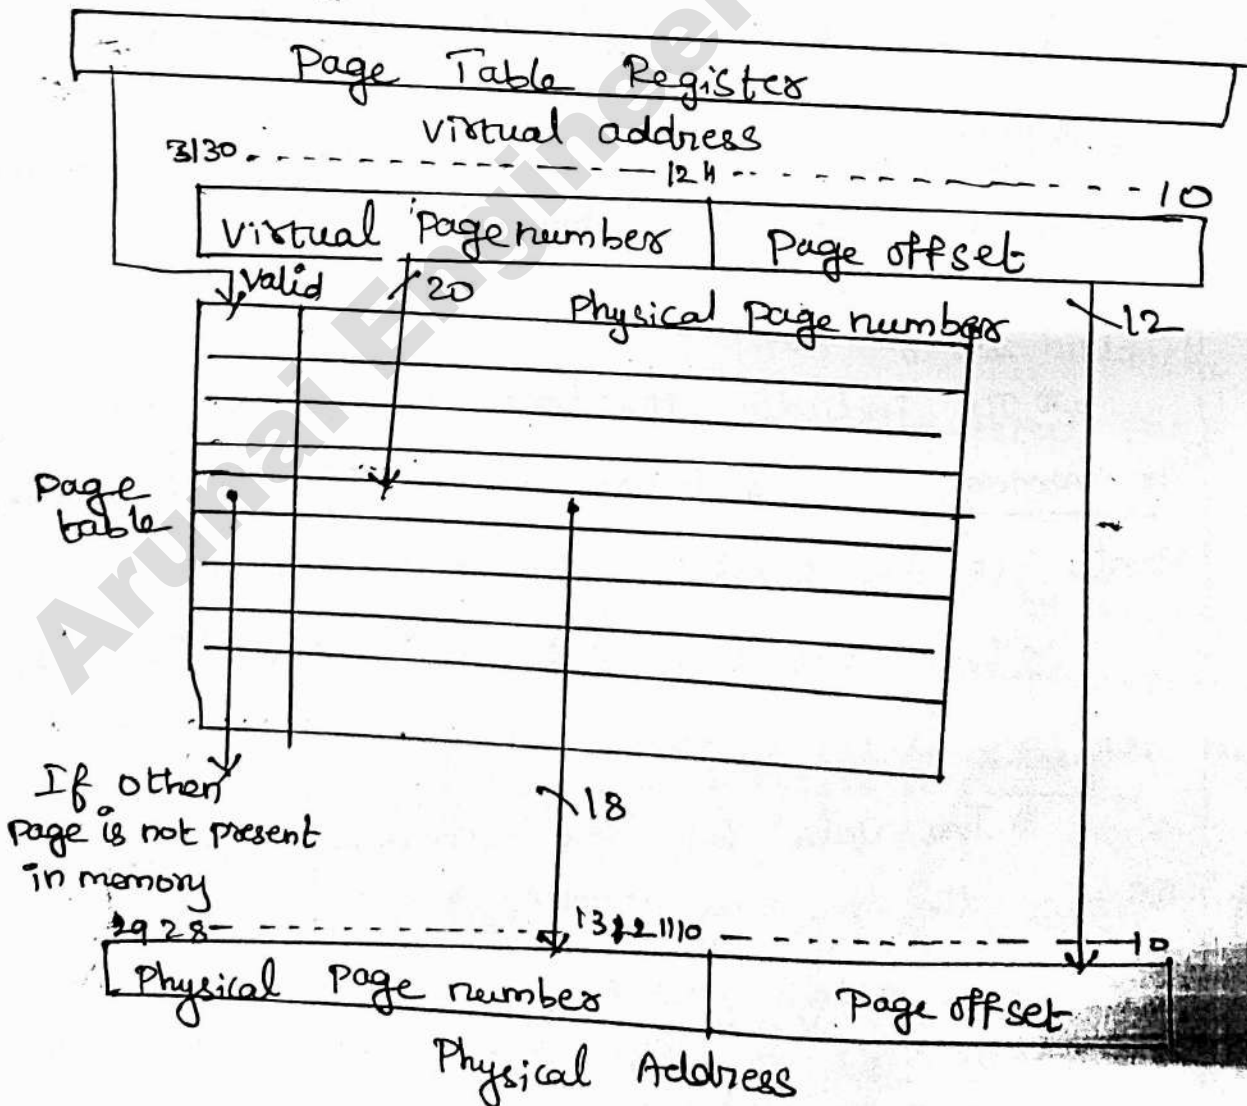 Page Table Register
virtual address
3130 - - - - - - - - - - - - 12 11 - - - - - - - - 10
virtual Page number Page offset
Valid 20 Physical page number 12
page
table
If other
page is not present
in memory
18
29 28 - - - - - - - - - - - 10
Physical Page number Page offset
Physical Address
Arunai Engineer